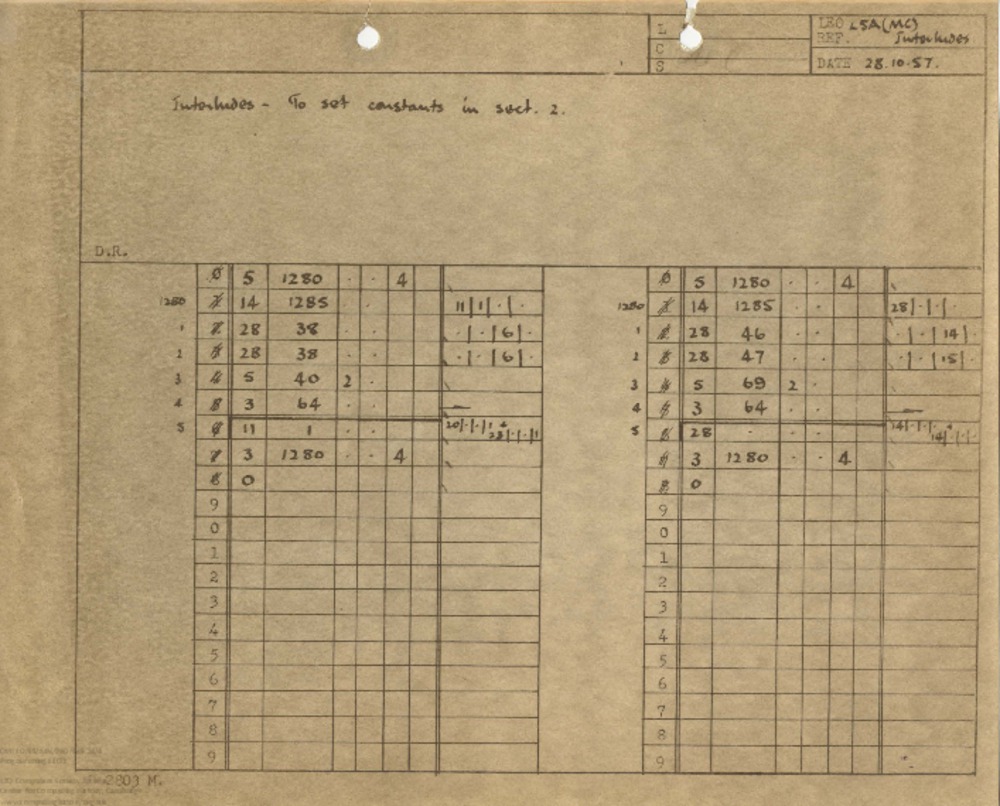 L
C
S
LEO L5A(MC)
REF. Interludes
DATE 28.10.57.
Interludes - To set constants in sect. 2.
D.R.
0 5 1280 . . 4
1280 1 14 1285 . . 11|1|.|.
1 2 28 38 . . .|.|6|.
2 3 28 38 . . .|.|6|.
3 4 5 40 2 .
4 5 3 64 . .
5 6 11 1 . .
7 3 1280 . . 4
8 0
9
0
1
2
3
4
5
6
7
8
9
0 5 1280 . . 4
1280 1 14 1285 . . 28|.|.|
1 2 28 46 . . .|.|14|
2 3 28 47 . . .|.|15|
3 4 5 69 2 .
4 5 3 64 . .
5 6 28 .
7 3 1280 . . 4
8 0
9
0
1
2
3
4
5
6
7
8
9
2803 M.